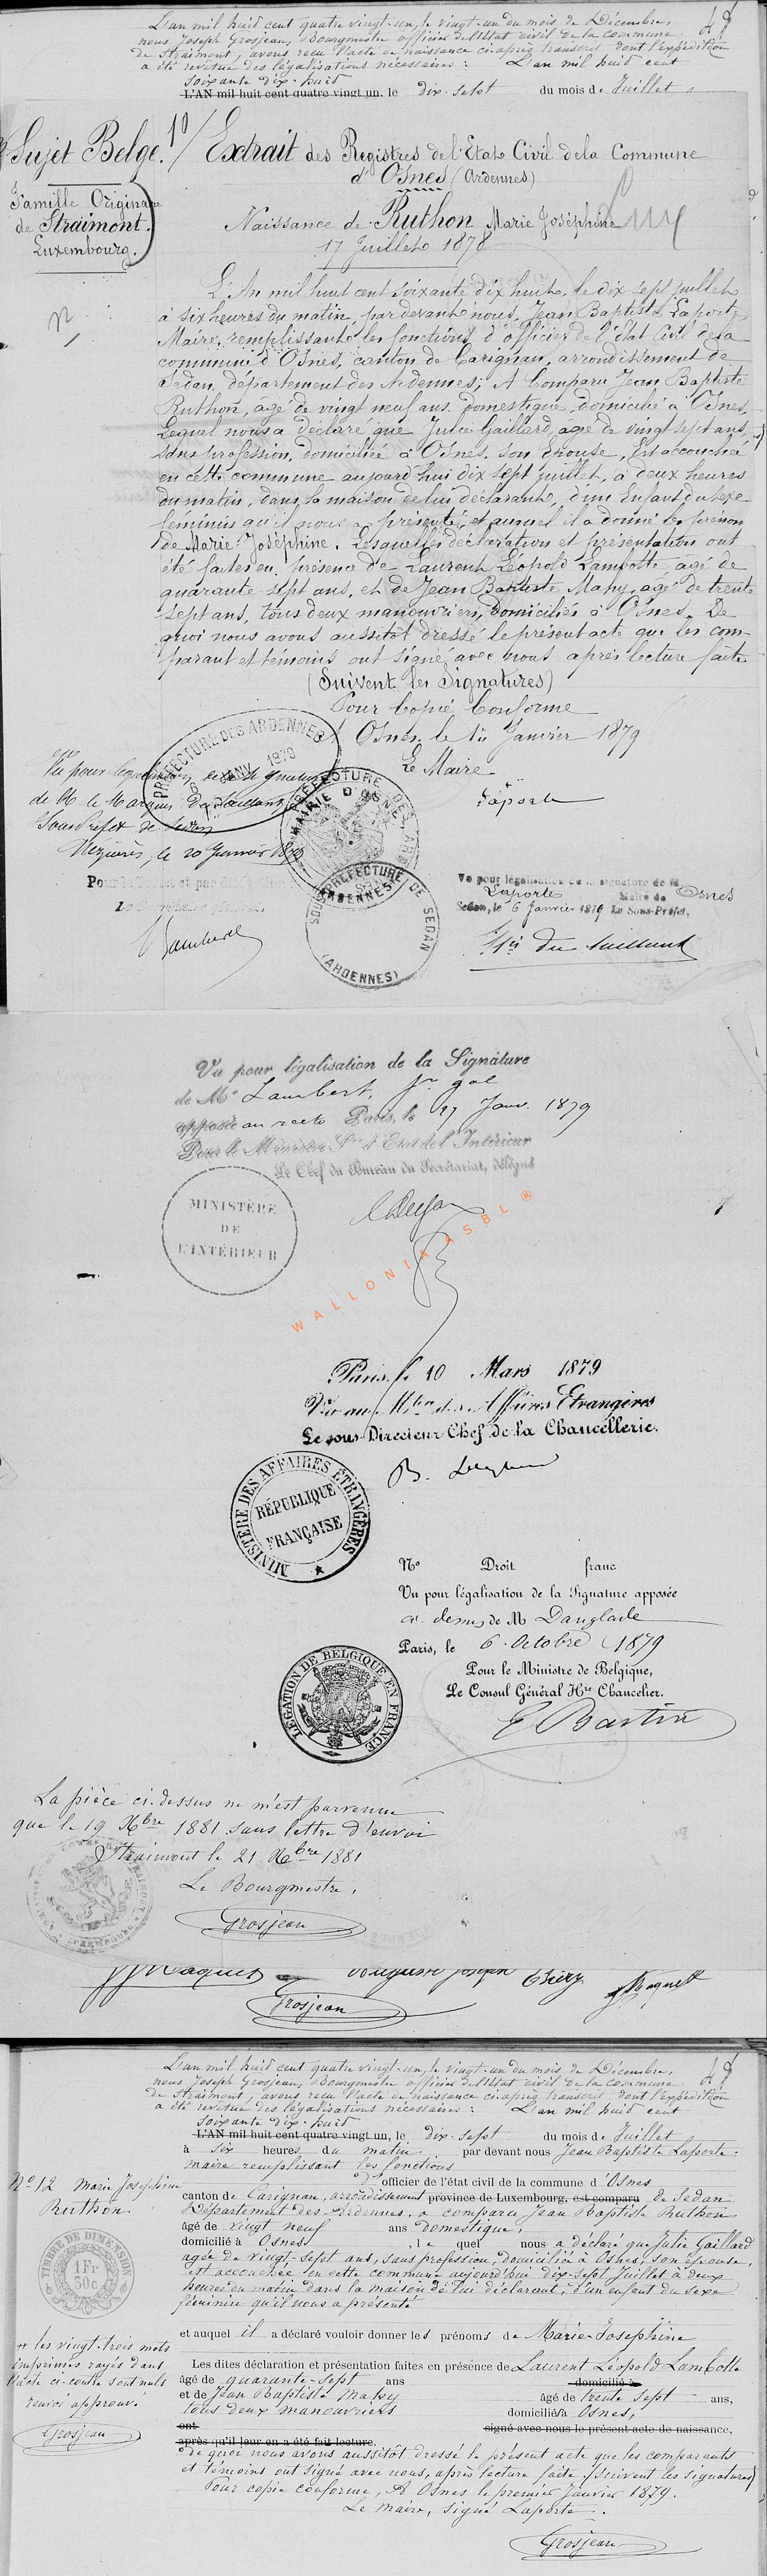 L'an mil huit cent quatre vingt-un, le vingt-un du mois de Décembre,
nous Joseph Grosjean, Bourgmestre officier de l'Etat civil de la commune
de Straimont, avons reçu l'acte de naissance ci-après transcrit dont l'expédition
a été revêtue des légalisations nécessaires : L'an mil huit cent
soixante dix-huit
L'AN mil huit cent quatre vingt un, le dix-sept du mois de Juillet
Sujet Belge.
Famille Originaire
de Straimont.
Luxembourg.
Extrait des Registres de l'Etat Civil de la Commune
d'Osnes (Ardennes)
Naissance de Ruthon Marie Joséphine
17 Juillet 1878
L'An mil huit cent soixante dix huit, le dix sept juillet
à six heures du matin, par devant nous, Jean Baptiste Laporte
Maire, remplissant les fonctions d'officier de l'état Civil de la
commune d'Osnes, canton de Carignan, arrondissement de
Sedan, département des Ardennes; A Comparu Jean Baptiste
Ruthon, âgé de vingt neuf ans, domestique, domicilié à Osnes,
Lequel nous a déclaré que Julie Gaillard, agée de vingt sept ans,
sans profession, domiciliée à Osnes, son épouse, Est accouchée
en cette commune aujourd'hui dix sept juillet, à deux heures
du matin, dans la maison de lui déclarant, d'un Enfant du sexe
féminin qu'il nous a présenté, et auquel il a donné les prénom
de Marie-Joséphine. Lesquelles déclaration et présentation ont
été faites en présence de Laurent Léopold Lambotte, âgé de
quarante sept ans, et de Jean Baptiste Mahy, agé de trente
sept ans, tous deux manouvriers, domiciliés à Osnes. De
quoi nous avons aussitôt dressé le présent acte que les com-
parant et témoins ont signé avec nous après lecture faite
(Suivent les Signatures)
Pour Copie Conforme
A Osnes, le 1er Janvier 1879
Le Maire
Laporte
PREFECTURE DES ARDENNES
JANV 1879
Vu pour légalisation de la signature
de M. le Marquis Du Saillant
Sous Préfet de Sedan
Mézières, le 10 Janvier 1879
MAIRIE D'OSNES
ARDENNES
SOUS-PREFECTURE DE SEDAN
(ARDENNES)
Vu pour légalisation de la signature de M.
Laporte Maire de Osnes
Sedan, le 6 Janvier 1879 Le Sous-Préfet,
Mis du Saillant
Vu pour légalisation de la Signature
de Mr Lambert, Sre gal
apposée au recto Paris, le 27 Janv. 1879
Pour le Ministre Sre d'Etat de l'Intérieur
Le Chef du Bureau du Secrétariat, délégué
MINISTÈRE
DE
L'INTÉRIEUR
WALLONIA ASBL ®
Paris, le 10 Mars 1879
Vu au Mtère des Affaires Etrangères
Le sous-Directeur Chef de la Chancellerie.
MINISTÈRE DES AFFAIRES ÉTRANGÈRES
RÉPUBLIQUE
FRANÇAISE
No Droit franc
Vu pour légalisation de la Signature apposée
ci-dessus de M Danglade
Paris, le 6 Octobre 1879
Pour le Ministre de Belgique,
Le Consul Général Hre Chancelier.
E Bastin
LÉGATION DE BELGIQUE EN FRANCE
La pièce ci-dessus ne m'est parvenue
que le 19 Xbre 1881 sans lettre d'envoi
Straimont le 21 Xbre 1881
Le Bourgmestre,
Grosjean
Maquet Auguste Joseph Thiery Maquet
Grosjean
L'an mil huit cent quatre vingt-un, le vingt-un du mois de Décembre,
nous Joseph Grosjean, Bourgmestre officier de l'Etat civil de la commune
de Straimont, avons reçu l'acte de naissance ci-après transcrit dont l'expédition
a été revêtue des légalisations nécessaires : L'an mil huit cent
soixante dix-huit
L'AN mil huit cent quatre vingt un, le dix-sept du mois de Juillet
à six heures du matin par devant nous Jean Baptiste Laporte
maire remplissant les fonctions
d'officier de l'état civil de la commune d'Osnes
No 12 Marie Josephine
Ruthon
canton de Carignan, arrondissement province de Luxembourg, est comparu de Sedan
Département des Ardennes, a comparu Jean Baptiste Ruthon
âgé de vingt neuf ans domestique,
domicilié à Osnes, lequel nous a déclaré que Julie Gaillard
agée de vingt-sept ans, sans profession, domiciliée à Osnes, son épouse,
est accouchée en cette commune aujourd'hui dix-sept Juillet à deux
heures du matin dans la maison de lui déclarant, d'un enfant du sexe
féminin qu'il nous a présenté
TIMBRE DE DIMENSION
1Fr
30c
et auquel il a déclaré vouloir donner les prénoms de Marie-Josephine
les vingt-trois mots
imprimés rayés dans
l'acte ci-contre sont nuls
renvoi approuvé
Grosjean
Les dites déclaration et présentation faites en présence de Laurent Léopold Lambotte
âgé de quarante-sept ans domicilié à
et de Jean Baptiste Mahy âgé de trente sept ans,
tous deux manouvriers domiciliés à Osnes,
ont signé avec nous le présent acte de naissance,
après qu'il leur en a été fait lecture.
de quoi nous avons aussitôt dressé le présent acte que les comparants
et témoins ont signé avec nous, après lecture faite (suivent les signatures)
Pour copie conforme, A Osnes le premier Janvier 1879.
Le maire, signé Laporte.
Grosjean